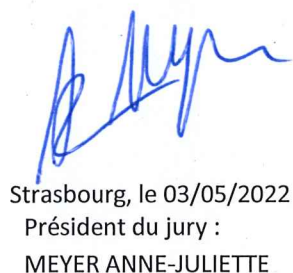 Strasbourg, le 03/05/2022
Président du jury :
MEYER ANNE-JULIETTE